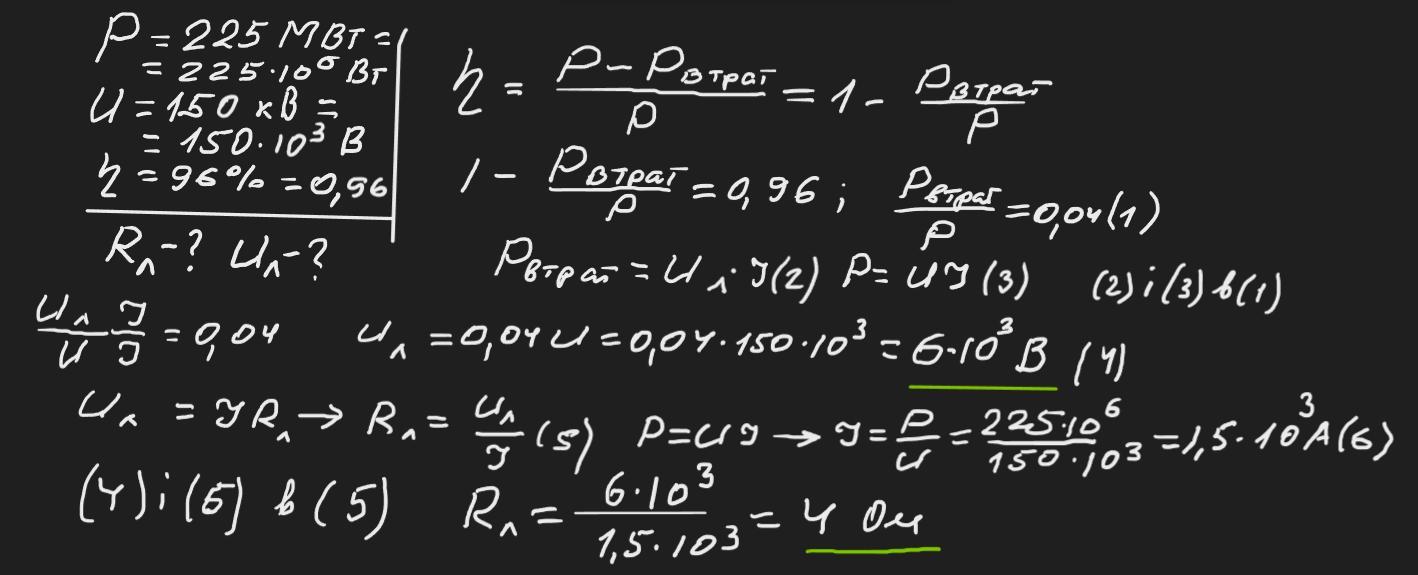 P = 225 МВт =
= 225·10⁶ Вт
U = 150 кВ =
= 150·10³ В
η = 96% = 0,96
Rл-? Uл-?
η = (P − Pвтрат)/P = 1 - Pвтрат/P
1 - Pвтрат/P = 0,96; Pвтрат/P = 0,04 (1)
Pвтрат = Uл·I (2) P = UI (3) (2) і (3) в (1)
Uл I/U I = 0,04 Uл = 0,04 U = 0,04·150·10³ = 6·10³ В (4)
Uл = IRл → Rл = Uл/I (5) P=UI → I = P/U = 225·10⁶/150·10³ = 1,5·10³ А (6)
(4) і (6) в (5) Rл = 6·10³/1,5·10³ = 4 Ом